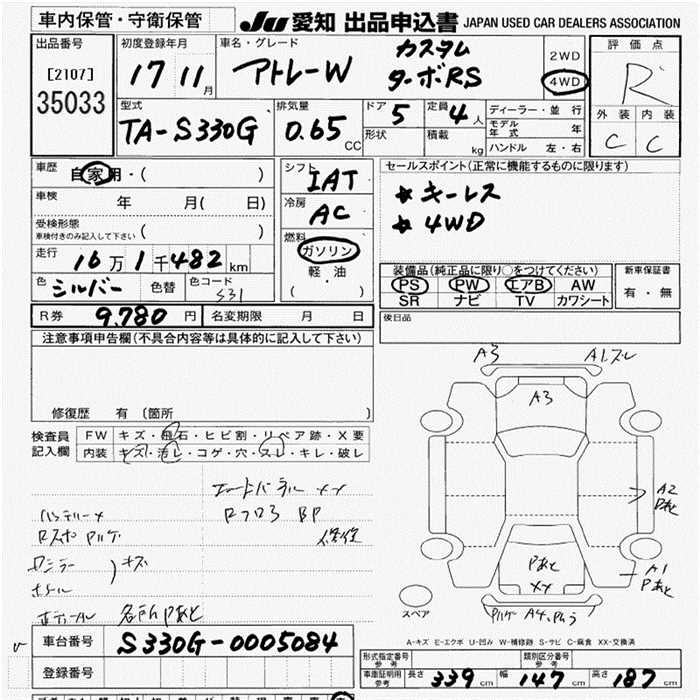 車内保管・守衛保管
JU 愛知 出品申込書 JAPAN USED CAR DEALERS ASSOCIATION
出品番号
[2107]
35033
初度登録年月
17 11月
車名・グレード
アトレーW
カスタム
ターボRS
2WD
4WD
評価点
R
外装 内装
C C
型式
TA-S330G
排気量
0.65 CC
ドア 5
形状
定員 4人
積載 kg
ディーラー・並行
モデル年式 年
ハンドル 左・右
車歴
自家用・( )
車検
年 月( 日)
受検形態
車検付きのみ記入して下さい ( )
走行
16万1千482km
色 シルバー 色替 色コード S31
R券 9.780 円 名変期限 月 日
シフト
IAT
冷房
AC
燃料
ガソリン
軽・油
( )
セールスポイント(正常に機能するものに限ります)
★キーレス
★4WD
装備品(純正品に限り○をつけてください)
PS PW エアB AW
SR ナビ TV カワシート
新車保証書
有・無
後日品
注意事項申告欄(不具合内容等は具体的に記入して下さい)
修復歴 有〔箇所 〕
検査員記入欄
FW キズ・飛石・ヒビ割・リペア跡・X要
内装 キズ・汚レ・コゲ・穴・スレ・キレ・破レ
RフロアBP
キズ
各所Pあと
A3
A1スレ
A3
A2
Pあと
A1
Pあと
Pあと
XX
スペア
A-キズ E-エクボ U-凹み W-補修跡 S-サビ C-腐食 XX-交換済
車台番号 S330G-0005084
登録番号
形式指定番号 参考
類別区分番号 参考
車庫証明用 参考 長さ 339cm 幅 147cm 高さ 187cm